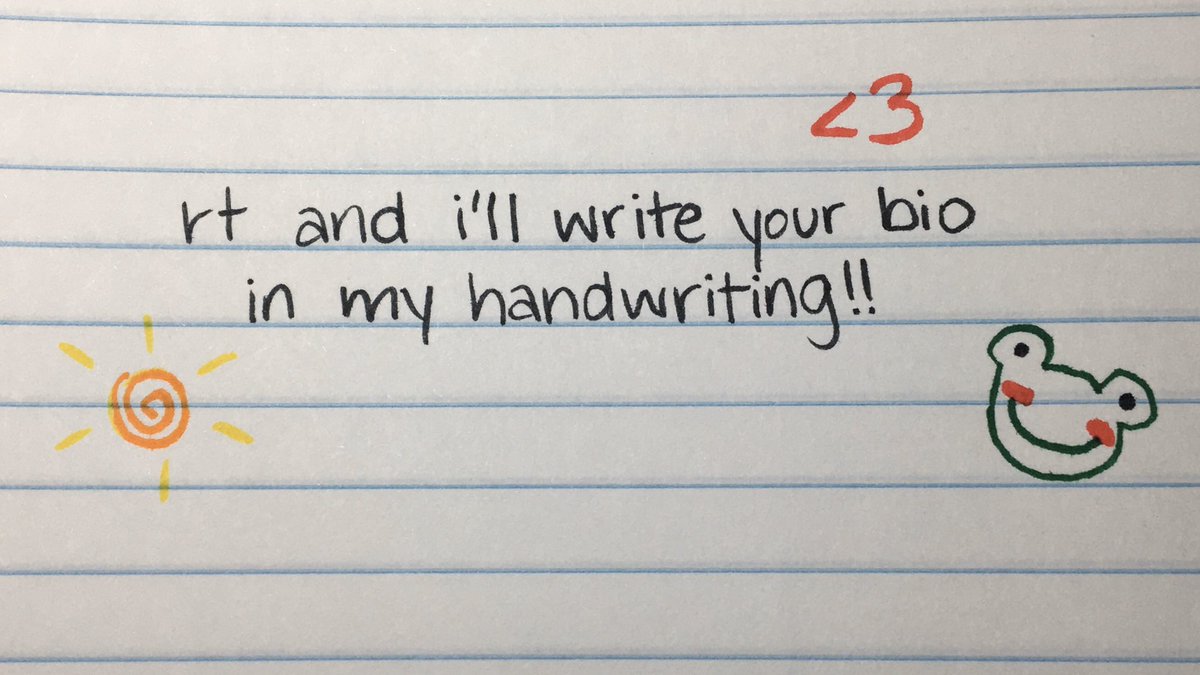 <3
rt and i'll write your bio
in my handwriting!!